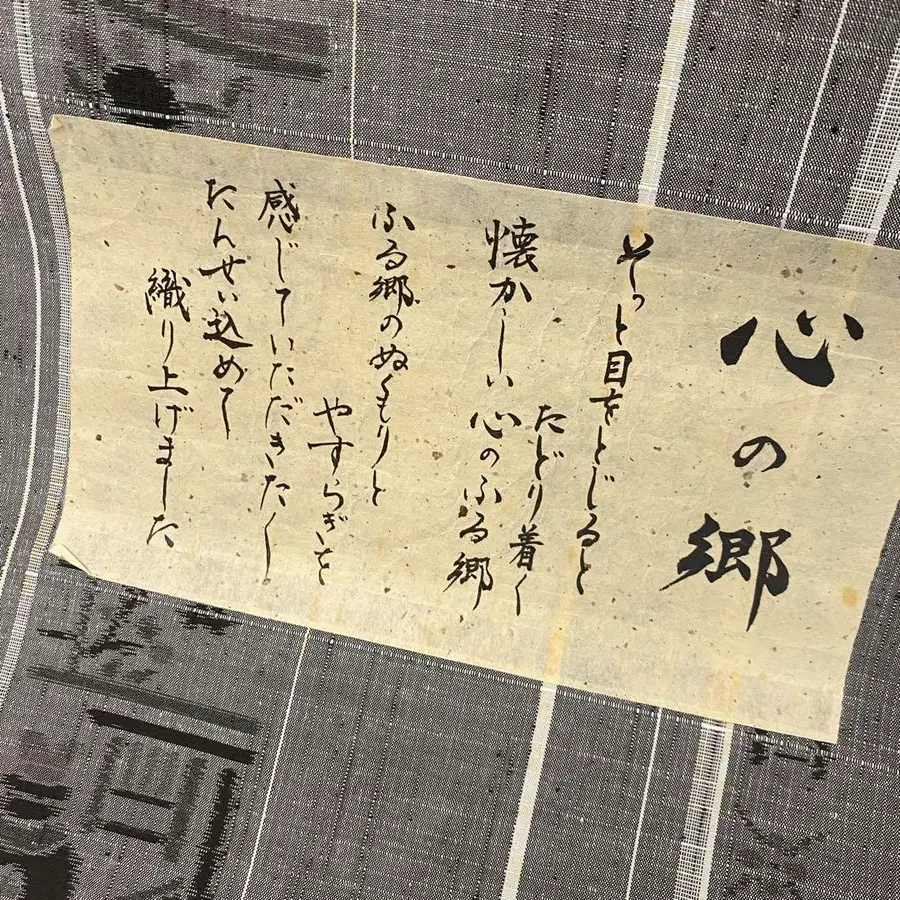 心の郷
そっと目をとじると
たどり着く
懐かしい心のふる郷
ふる郷のぬくもりと
やすらぎを
感じていただきたく
たんせい込めて
織り上げました